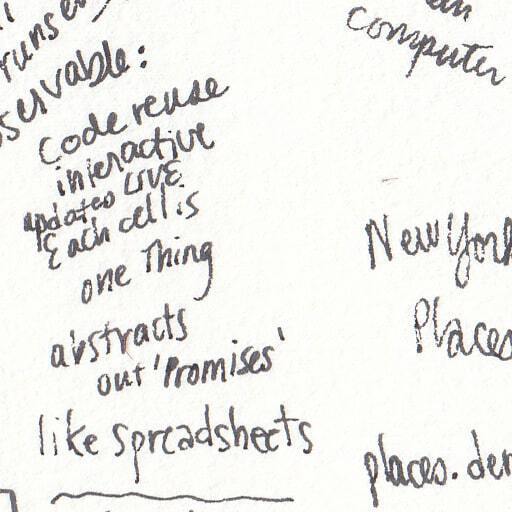 servable:
Code reuse
interactive
updates LIVE
Each cell is
one Thing
abstracts
out 'Promises'
like spreadsheets
computer
New York
Places
places.der